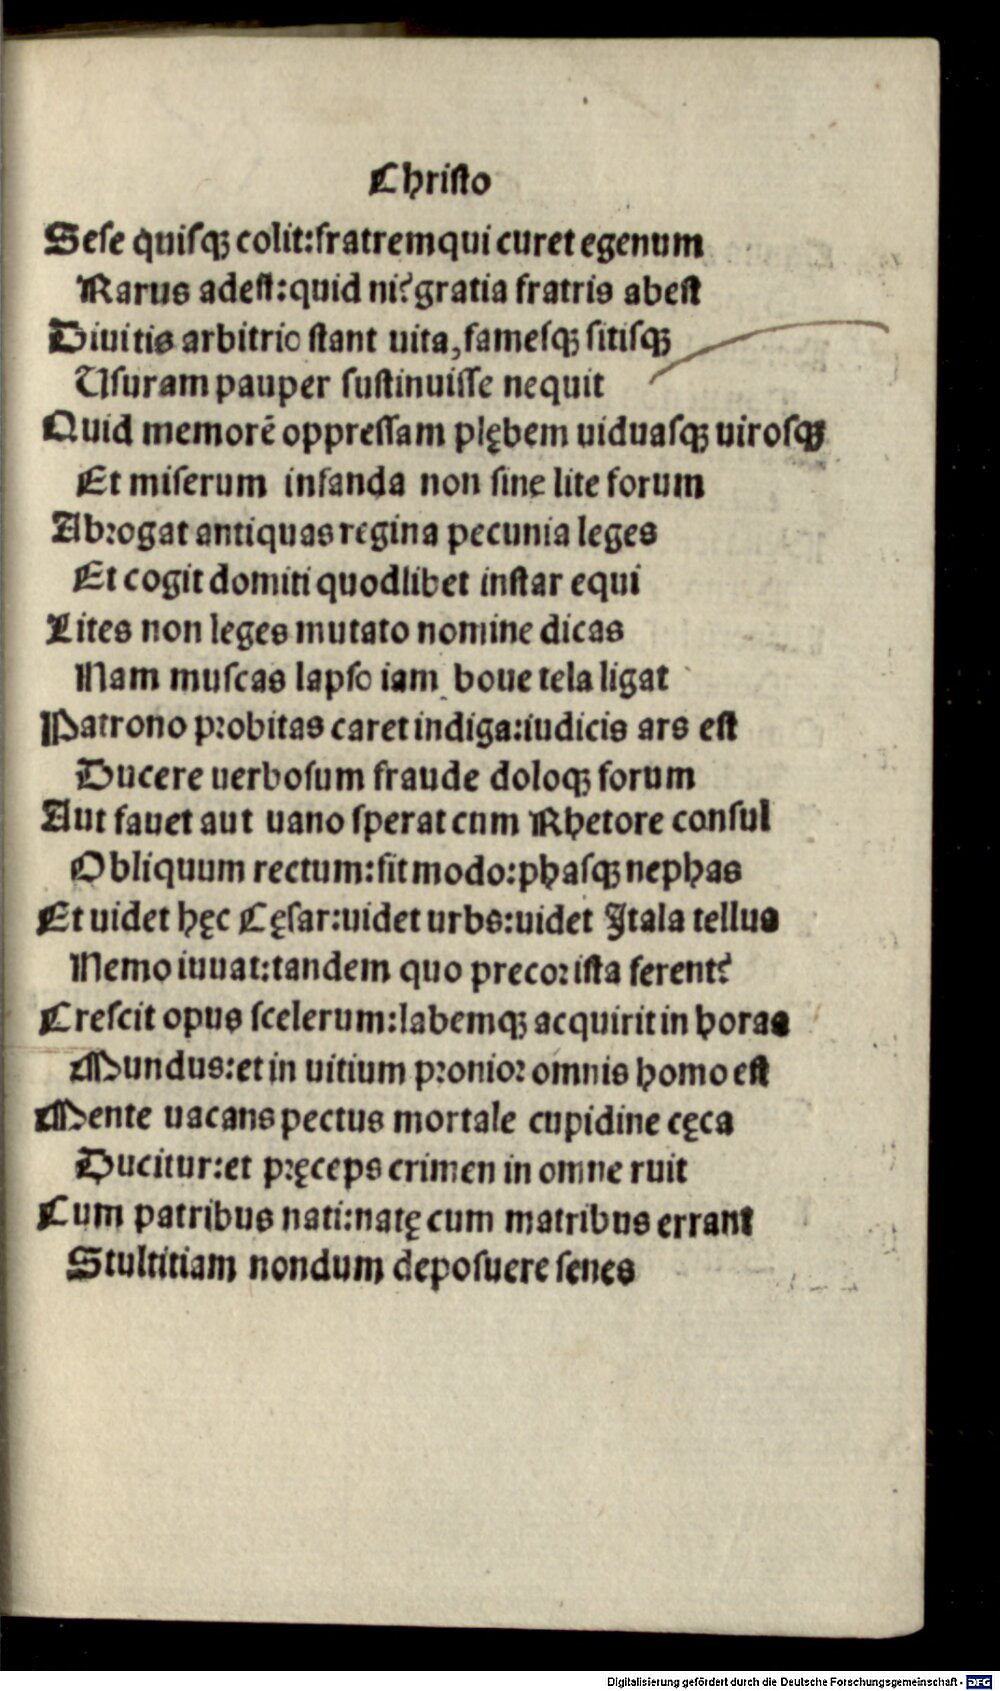 Christo
Sese quisqꝫ colit:fratremqui curet egenum
Rarus adest:quid ni? gratia fratris abest
Diuitis arbitrio stant uita, famesqꝫ sitisqꝫ
Usuram pauper sustinuisse nequit
Quid memorē oppressam plębem uiduasqꝫ uirosqꝫ
Et miserum insanda non sine lite forum
Abrogat antiquas regina pecunia leges
Et cogit domiti quodlibet instar equi
Lites non leges mutato nomine dicas
Nam muscas lapso iam boue tela ligat
Patrono probitas caret indiga:iudicis ars est
Ducere uerbosum fraude doloqꝫ forum
Aut fauet aut uano sperat cum Rhetore consul
Obliquum rectum:sit modo:phasqꝫ nephas
Et uidet hęc Cęsar:uidet urbs:uidet Itala tellus
Nemo iuuat:tandem quo precor ista ferent?
Crescit opus scelerum:labemqꝫ acquirit in horas
Mundus:et in uitium pronior omnis homo est
Mente uacans pectus mortale cupidine cęca
Ducitur:et pręceps crimen in omne ruit
Cum patribus nati:natę cum matribus errant
Stultitiam nondum deposuere senes
Digitalisierung gefördert durch die Deutsche Forschungsgemeinschaft - DFG